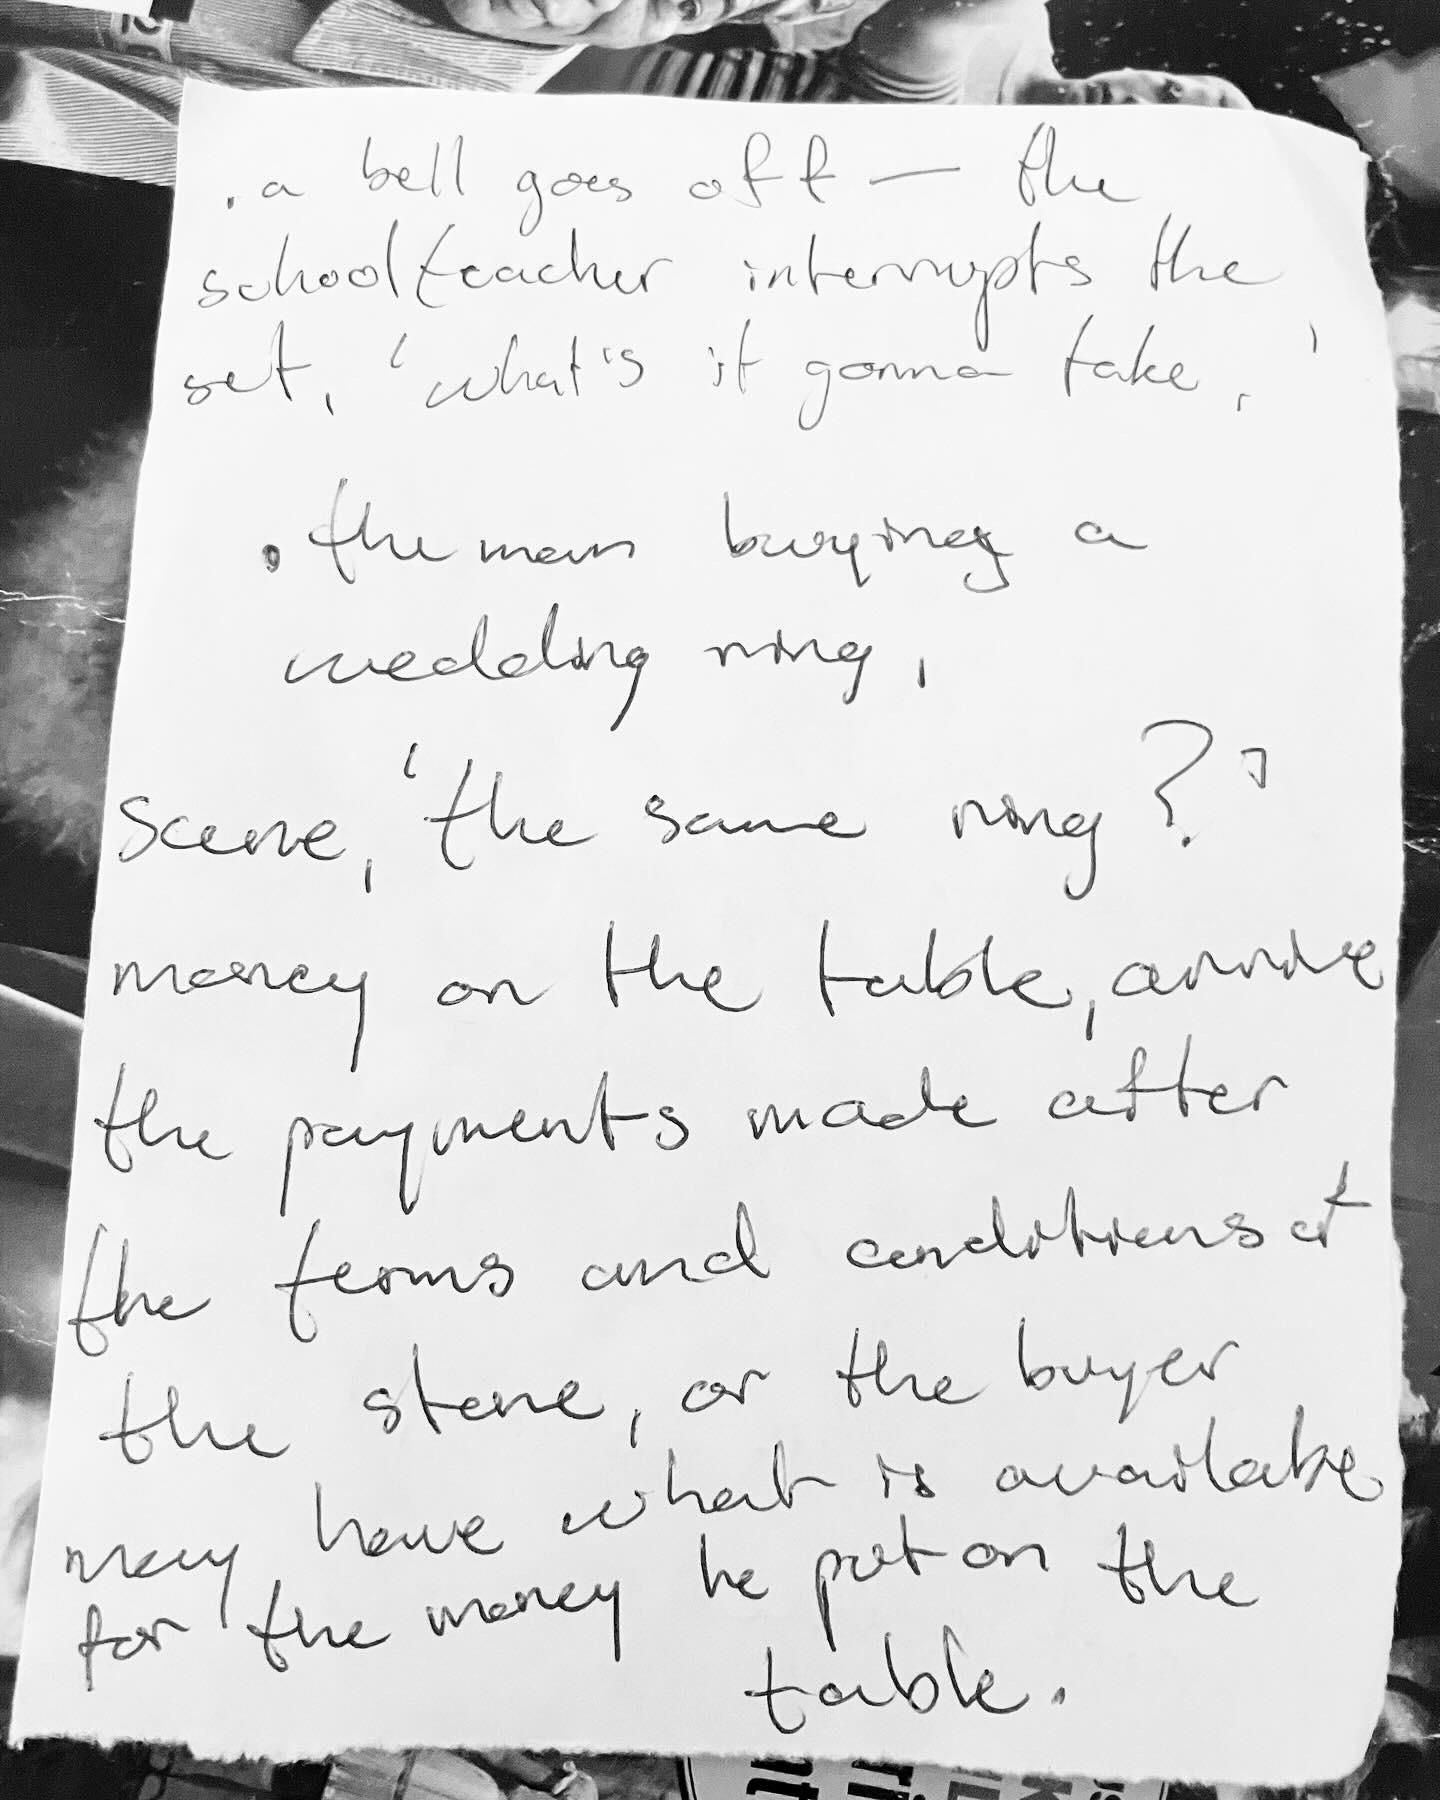 . a bell goes off — the
schoolteacher interrupts the
set, 'what's it gonna take.'
. the man buying a
wedding ring,
scene, 'the same ring?'
money on the table, arrive
the payments made after
the terms and conditions at
the store, or the buyer
may have what is available
for the money he put on the
table.